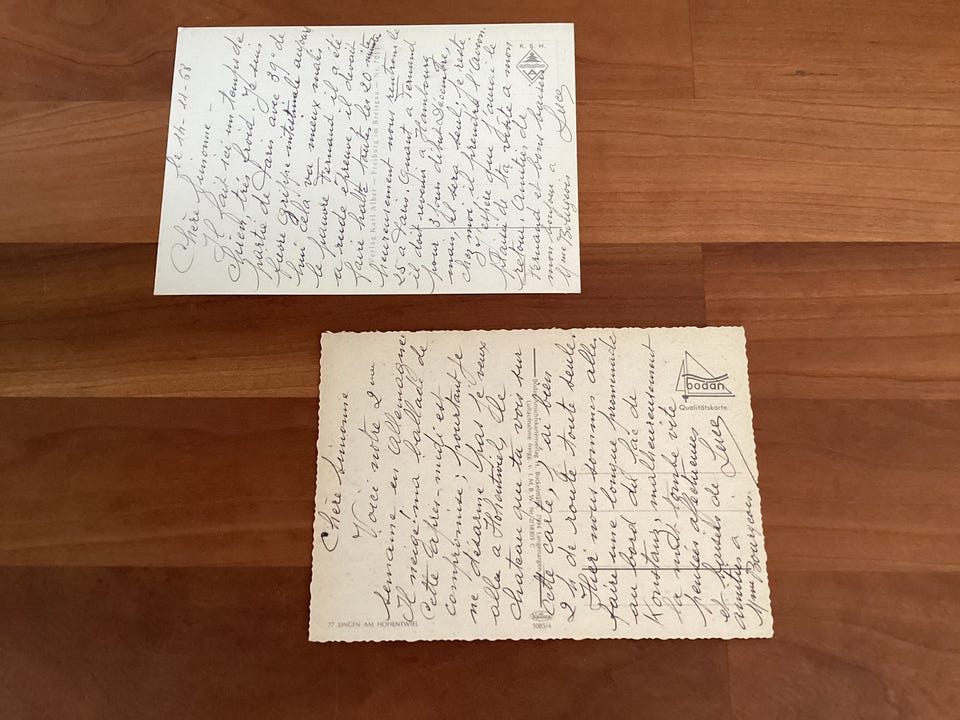 le 14-11-68
Chère Simonne
Il fait ici un temps de
chien, très froid. Je suis
partie de Paris avec 39° de
fièvre Grippe intestinale aujourd
hui cela va mieux mais
le pauvre Fernand il a été
a rude épreuve, il devait
faire halte toute les 20 minutes
heureusement nous rentrons le
25 a Paris. Quant a Fernand
il doit revenir a Hambourg
pour 3 jours début Décembre
mais il sera seul, je reste
chez moi, il prendra l'avion.
J'espère que j'aurai le
plaisir de ta visite a mon
retour. Amitiés de
Fernand et bons baisers
mon bonjour a Luce
Mme Bourgeois
Verlag Karl Alber – Freiburg im Breisgau
K. G. H.
Chère Simonne
Voici notre 2 ème
semaine en Allemagne.
Il neige! ma ballade de
cette après-midi est
compromise; pourtant je
ne désarme pas je veux
allé a Hohentwiel, le
chateau que tu vois sur
cette carte, j'ai bien
2 h de route toute seule.
Hier nous sommes allé
faire une longue promenade
au bord du lac de
Konstanz, malheureusement
la nuit tombe vite
pensées affectueuses
et baisers de Luce
amitiés a
Mme Bourgeois.
bodan
Qualitätskarte
77 SINGEN AM HOHENTWIEL
1085/4